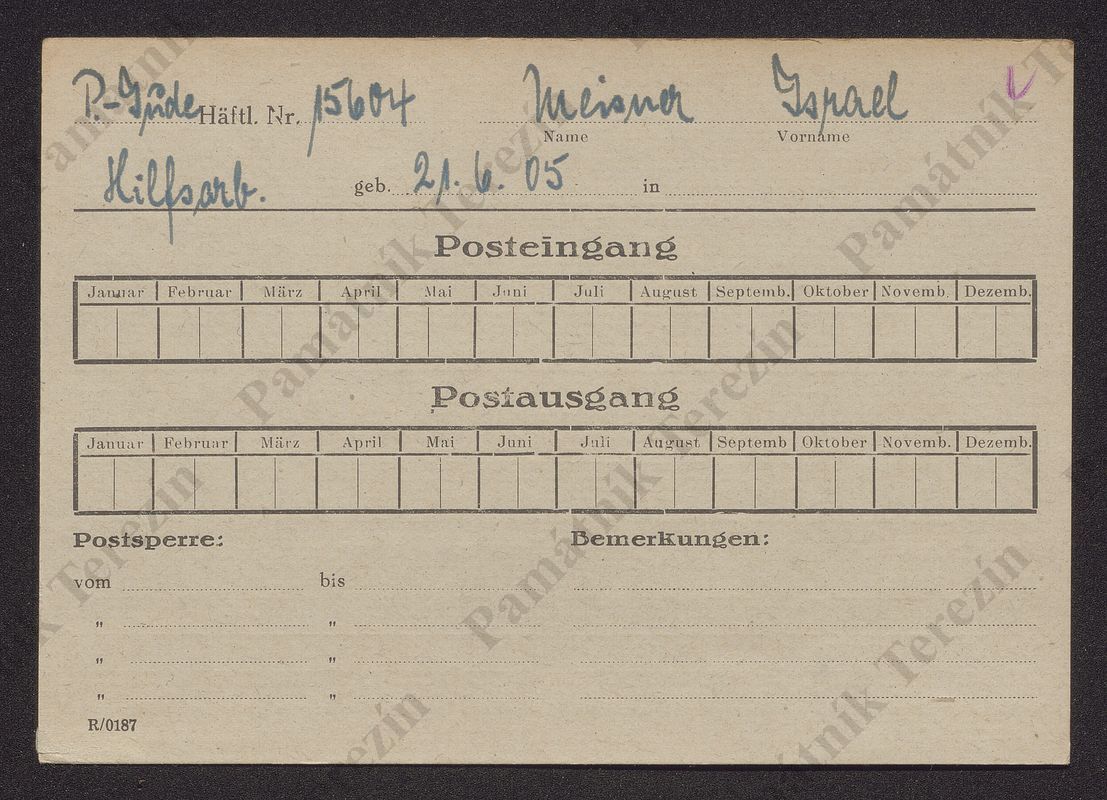 P.-Jude Häftl. Nr. 15604 Meisner Israel
Name Vorname
Hilfsarb. geb. 21. 6. 05 in
Posteingang
Januar Februar März April Mai Juni Juli August Septemb. Oktober Novemb. Dezemb.
Postausgang
Januar Februar März April Mai Juni Juli August Septemb Oktober Novemb. Dezemb.
Postsperre: Bemerkungen:
vom bis
" "
" "
" "
R/0187
Památník Terezín